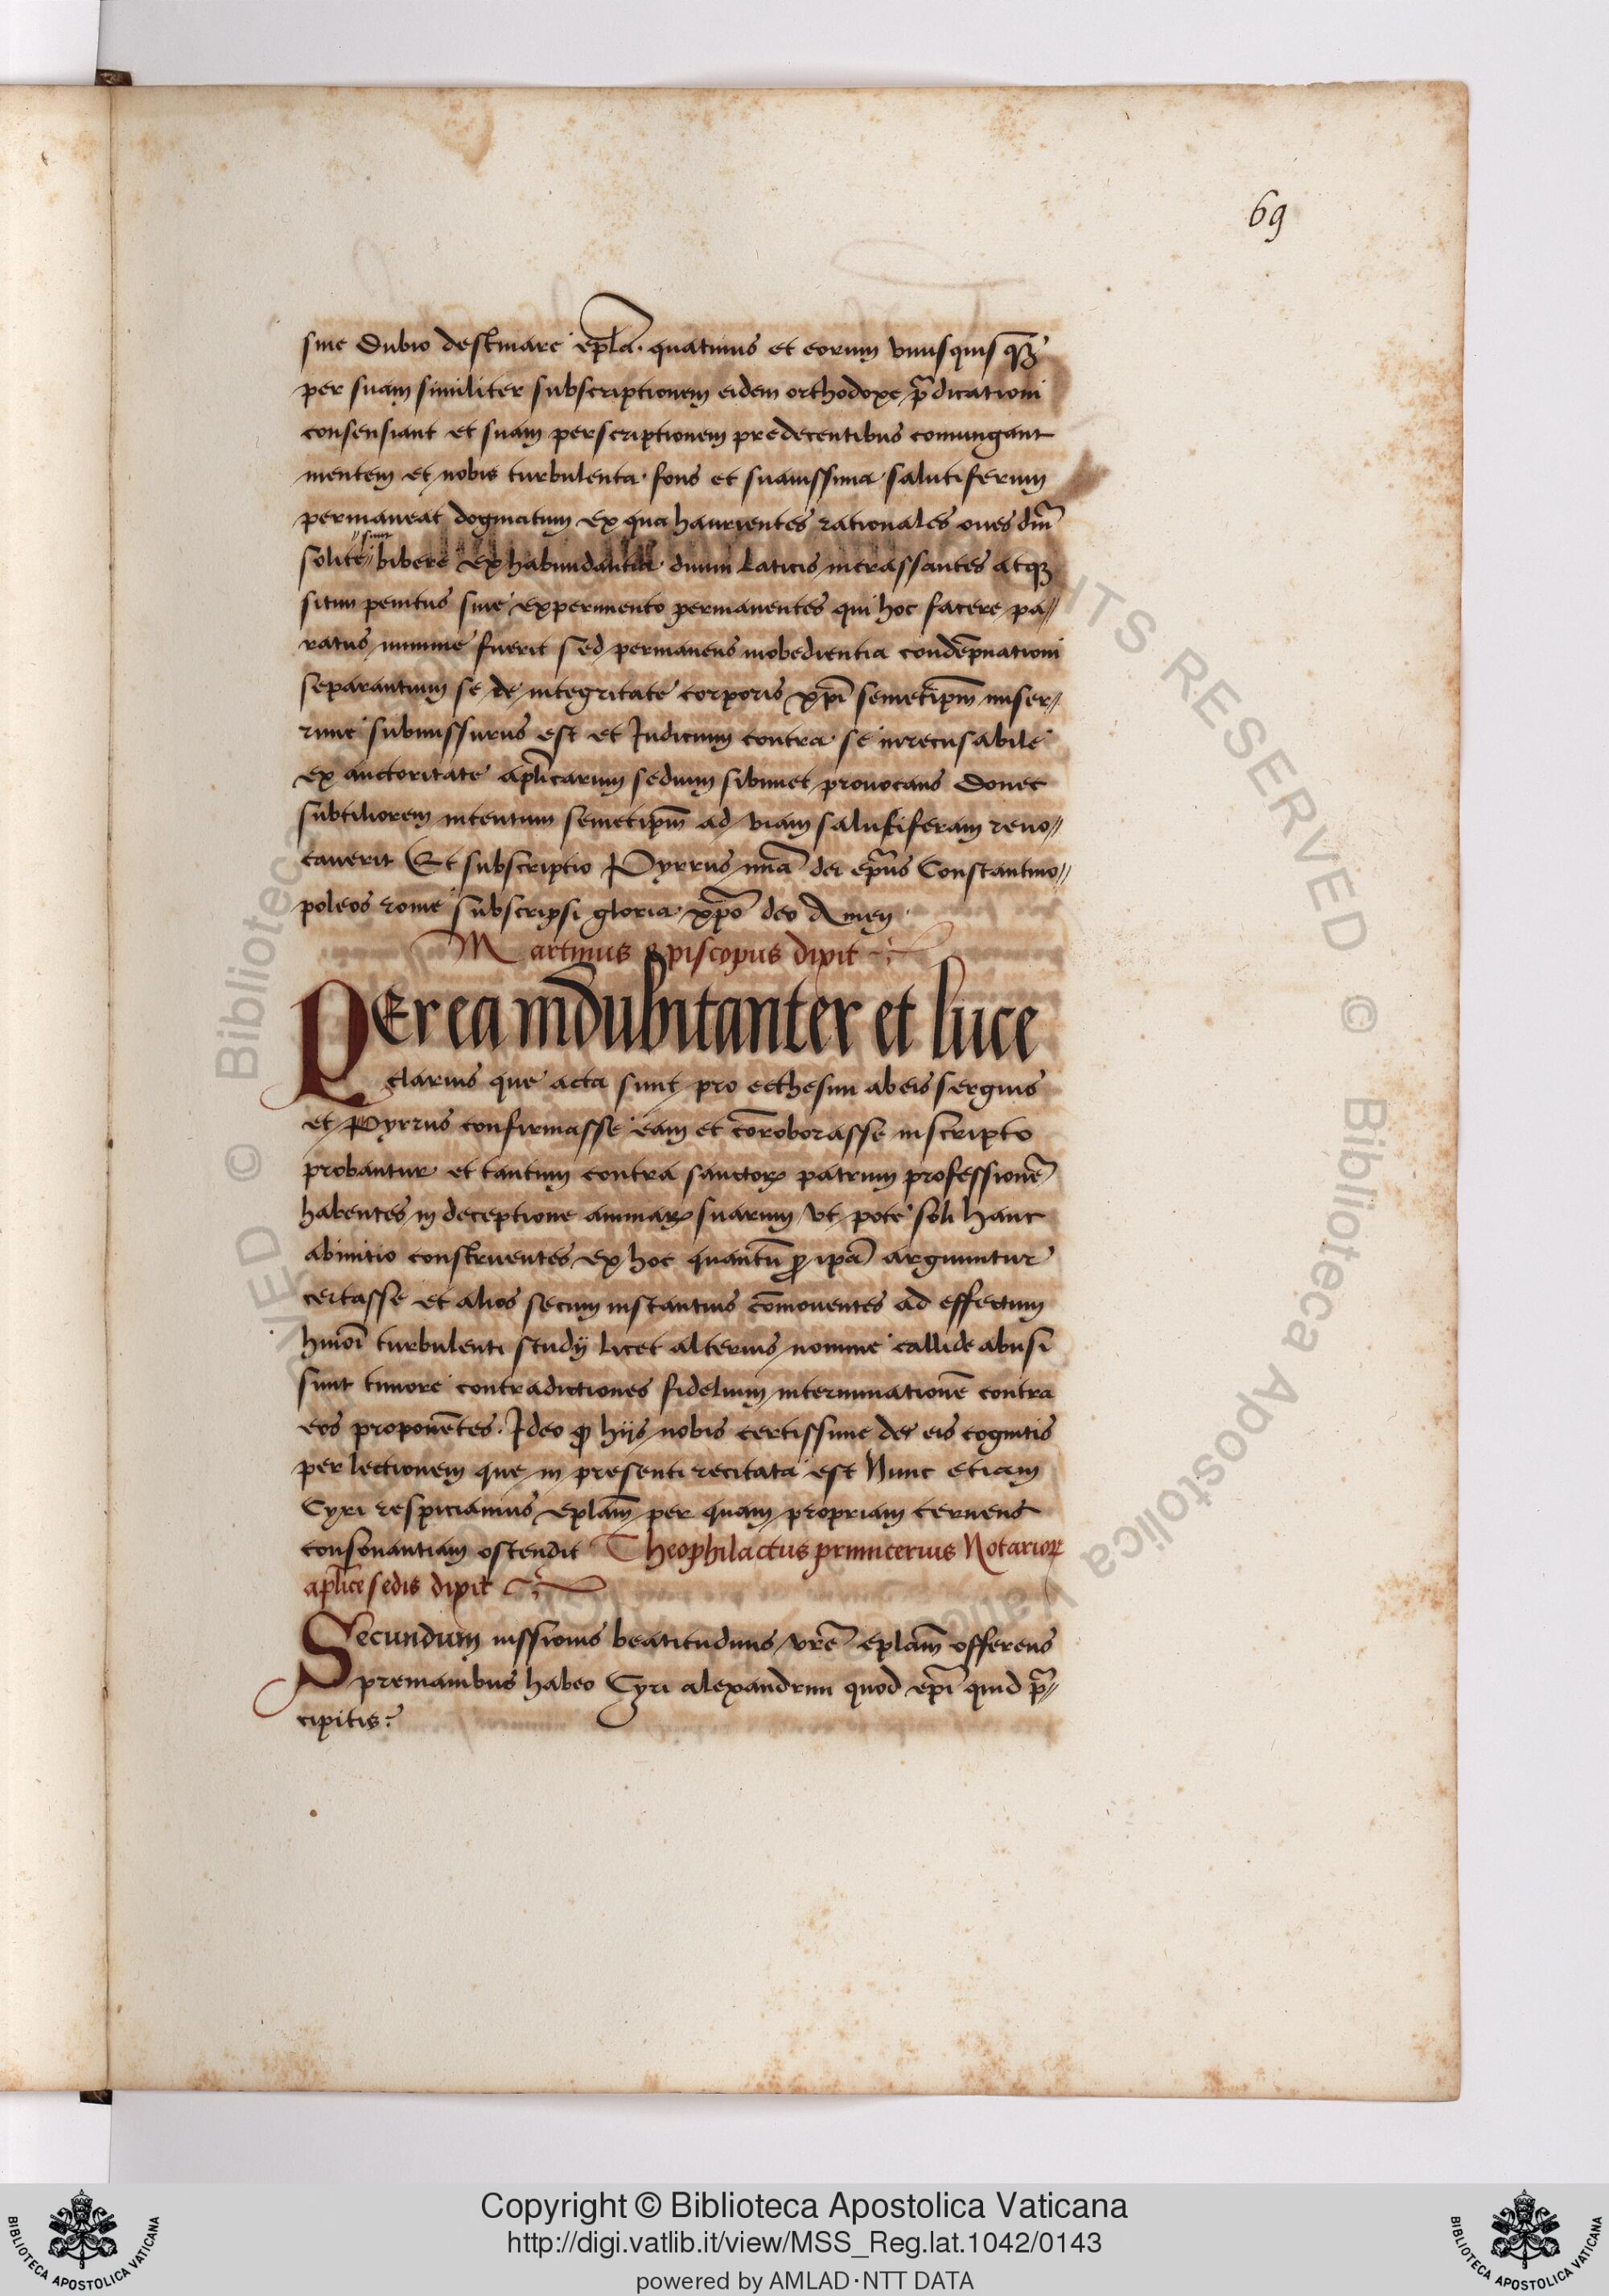 69
sine dubio destinare epl̄a. quatinus et eorum vnusquisq̄ꝫ
per suam similiter subscriptionem eidem orthodoxe p̄dicationi
consensiant et suam perscriptionem predecentibus comungant
mentem et nobis turbulenta fons et suauissima salutiferum
permaneat dogmatum ex qua haurientes rationales oues dn̄i
solite bibere ex habundantia diuini laticis incrassantes atqꝫ
sunt
sitim penitus sine experimento permanentes qui hoc facere pa//
ratus minime fuerit sed permanens inobedientia condēpnationi
separantium se de integritate corporis xp̄i semetip̄m miser//
rime submissurus est et Iudicium contra se irrecusabile
ex auctoritate apl̄icarum sedium sibimet prouocans donec
subtiliorem intentum semetip̄m ad viam salutiferam reuo//
cauerit Et subscriptio Pyrrus mīa dei ep̄us Constantino//
poleos rome subscripsi gloria xp̄o deo Amen
Martinus episcopus dixit
PEr ea indubitanter et luce
clarius que acta sunt pro ecthesim ab eis sergius
et Pyrrus confirmasse eam et cōroborasse in scripto
probantur et tantum contra sanctorꝝ patrum professionē
habentes in deceptione animarꝝ suarum vt pote soli hanc
ab initio construentes ex hoc quantū ꝓ ip̄a arguuntur
certasse et alios secum instantius cōmouentes ad effectum
hmōi turbulenti studij licet alterius nomine callide abusi
sunt timore contradictiones fidelium interminationē contra
eos proponētes. Ideo ꝙ hijs nobis certissime de eis cognitis
per lectionem que in presenti recitata est Nunc etiam
Cyri respiciamus eplam̄ per quam propriam
consonantiam ostendit Theophilactus primicerius Notariorꝝ
apl̄ice sedis dixit
Secundum iussionis beatitudinis vrē eplam̄ offerens
premanibus habeo Cyri alexandrini quod ep̄i quid p̄//
cipitis:
© Biblioteca Apostolica Vaticana
RIGHTS RESERVED
Copyright © Biblioteca Apostolica Vaticana
http://digi.vatlib.it/view/MSS_Reg.lat.1042/0143
powered by AMLAD·NTT DATA
BIBLIOTECA APOSTOLICA VATICANA
BIBLIOTECA APOSTOLICA VATICANA